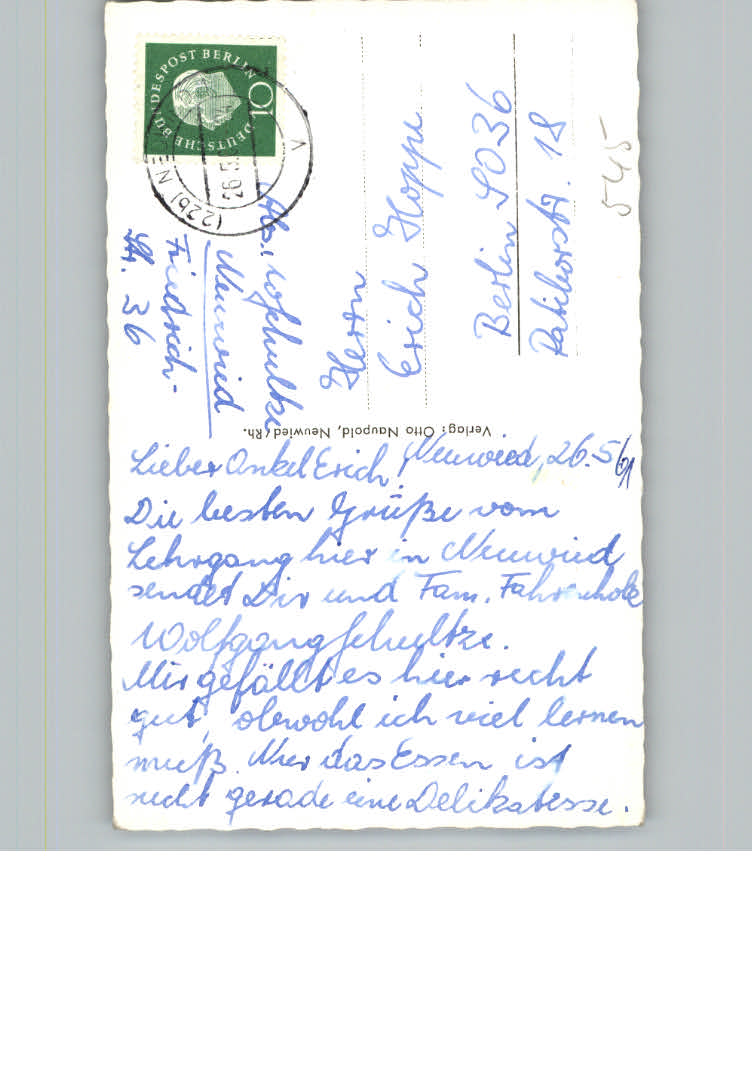 DEUTSCHE BUNDESPOST BERLIN
10
(22b) NEU
26.5.
Abs. W. Schultze
Neuwied
Friedrich-
Str. 36
Herrn
Erich Hoppe
Berlin SO36
Ratiborstr. 18
545
Verlag: Otto Naupold, Neuwied/Rh.
Neuwied, 26.5.61
Lieber Onkel Erich!
Die besten Grüße vom
Lehrgang hier in Neuwied
sendet Dir und Fam. Fahrenholz
Wolfgang Schultze.
Mir gefällt es hier recht
gut, obwohl ich viel lernen
muß. Nur das Essen ist
nicht gerade eine Delikatesse.